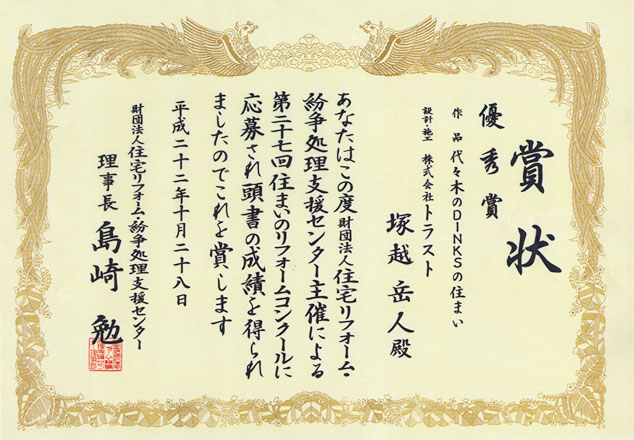 賞状
優秀賞
作品 代々木のDINKSの住まい
設計・施工 株式会社トラスト
塚越岳人殿
あなたはこの度財団法人住宅リフォーム・
紛争処理支援センター主催による
第二十七回住まいのリフォームコンクールに
応募され頭書の成績を得られ
ましたのでこれを賞します
平成二十二年十月二十八日
財団法人住宅リフォーム・紛争処理支援センター
理事長 島崎勉